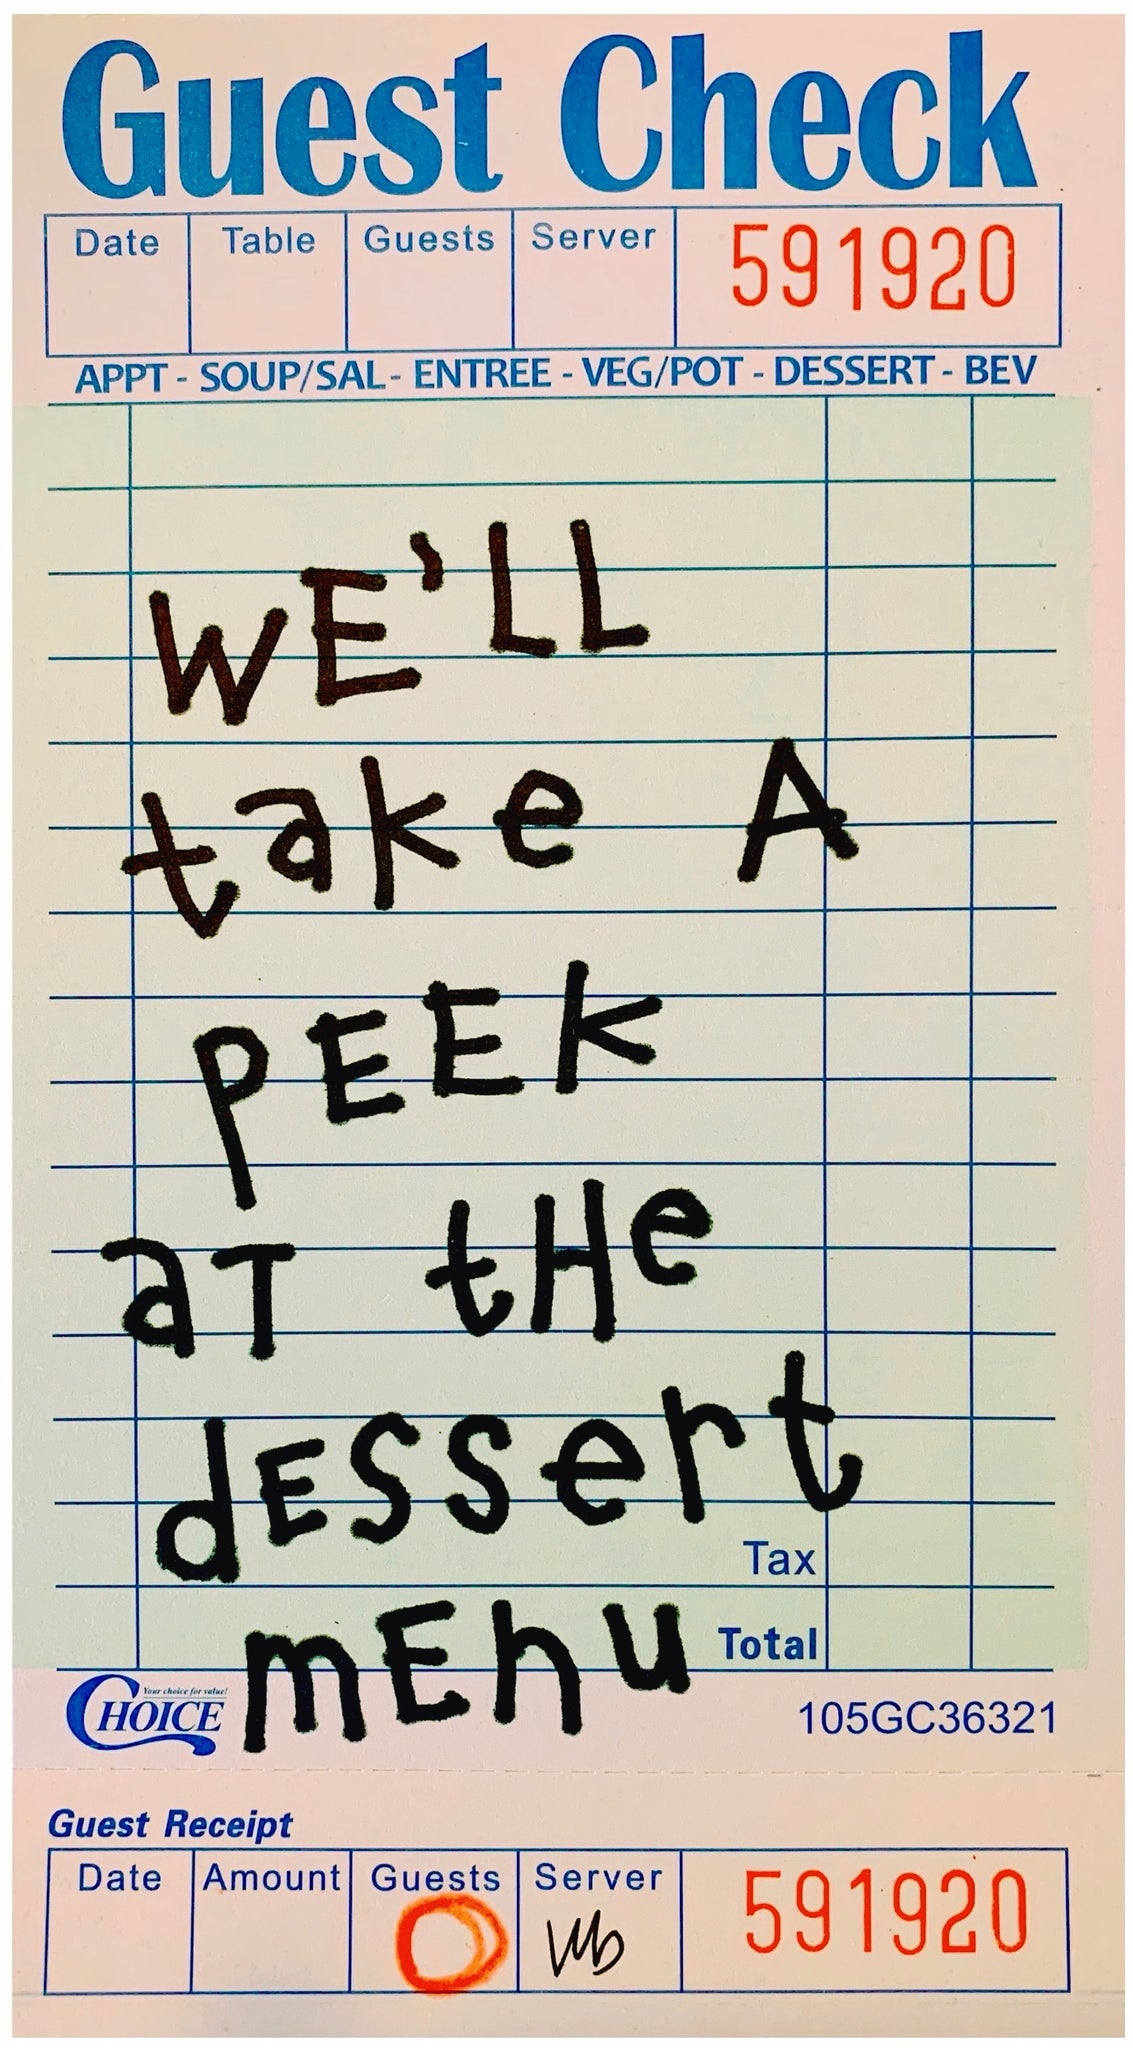 Guest Check
Date Table Guests Server 591920
APPT - SOUP/SAL - ENTREE - VEG/POT - DESSERT - BEV
WE'LL
take A
PEEK
aT tHe
dESSert
Tax
mEnu Total
Your choice for value!
CHOICE
105GC36321
Guest Receipt
Date Amount Guests Server 591920